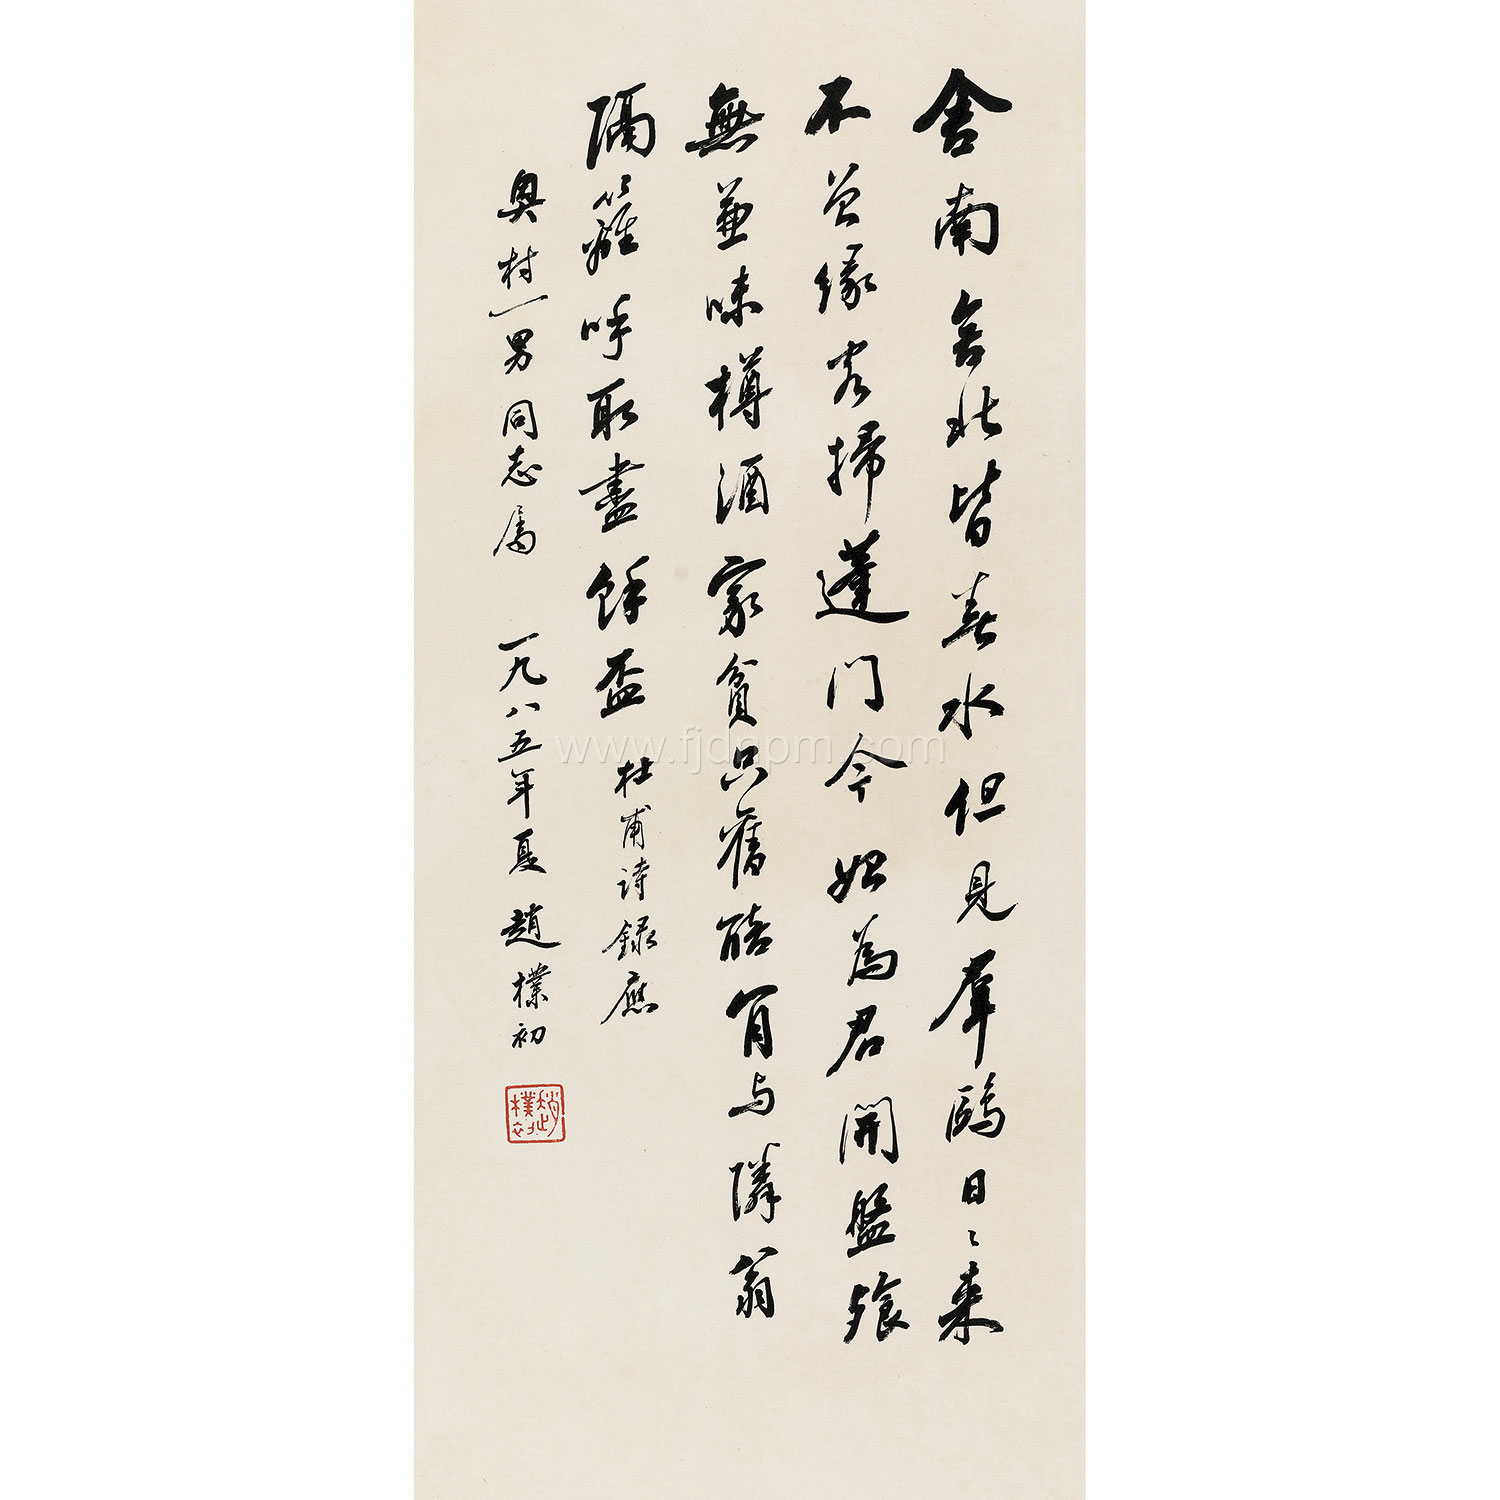 舍南舍北皆春水但見羣鷗日〻來
不曾緣客掃蓬门今始為君開盤飱
無兼味樽酒家貧只舊醅肯与隣翁
隔籬呼取盡餘盃 杜甫诗録應
奥村一男同志属 一九八五年夏 趙樸初
趙樸初